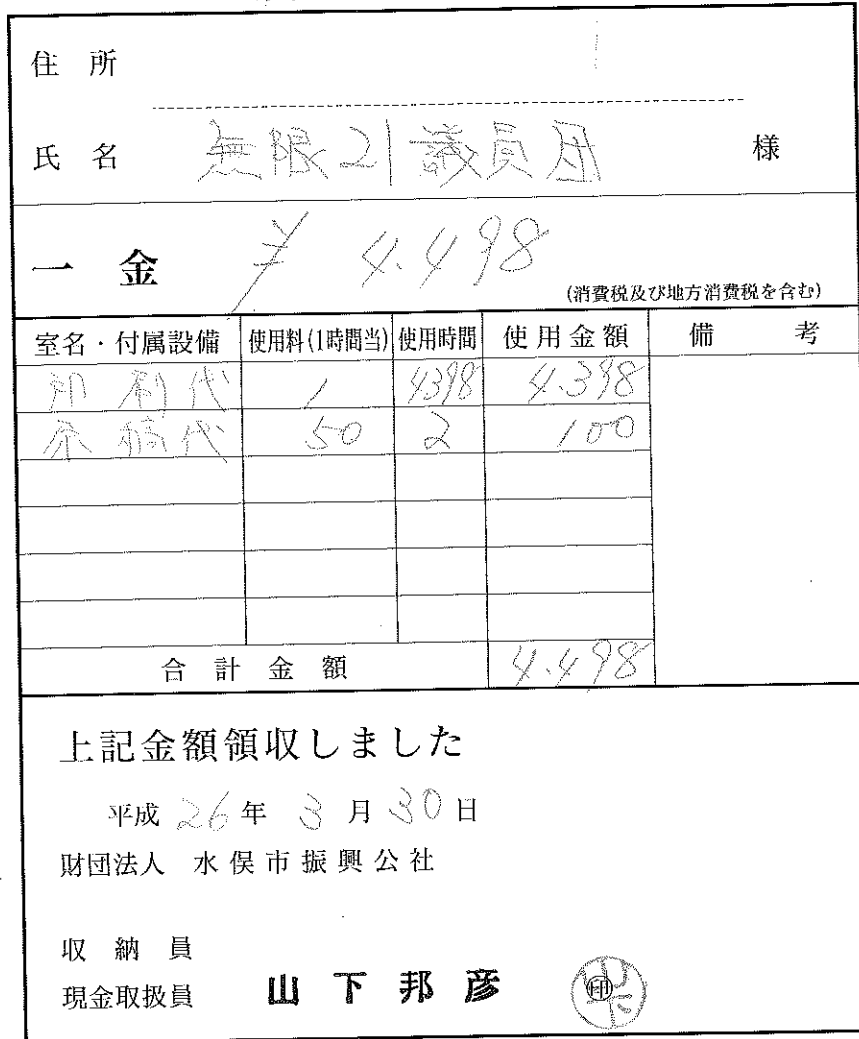 住所
氏名 無限21議員団 様
一金 ¥4.498
(消費税及び地方消費税を含む)
室名・付属設備 使用料(1時間当) 使用時間 使用金額 備考
印刷代 1 4398 4.398
原稿代 50 2 100
合計金額 4.498
上記金額領収しました
平成26年3月30日
財団法人 水俣市振興公社
収納員
現金取扱員 山下邦彦 ㊞ 山下